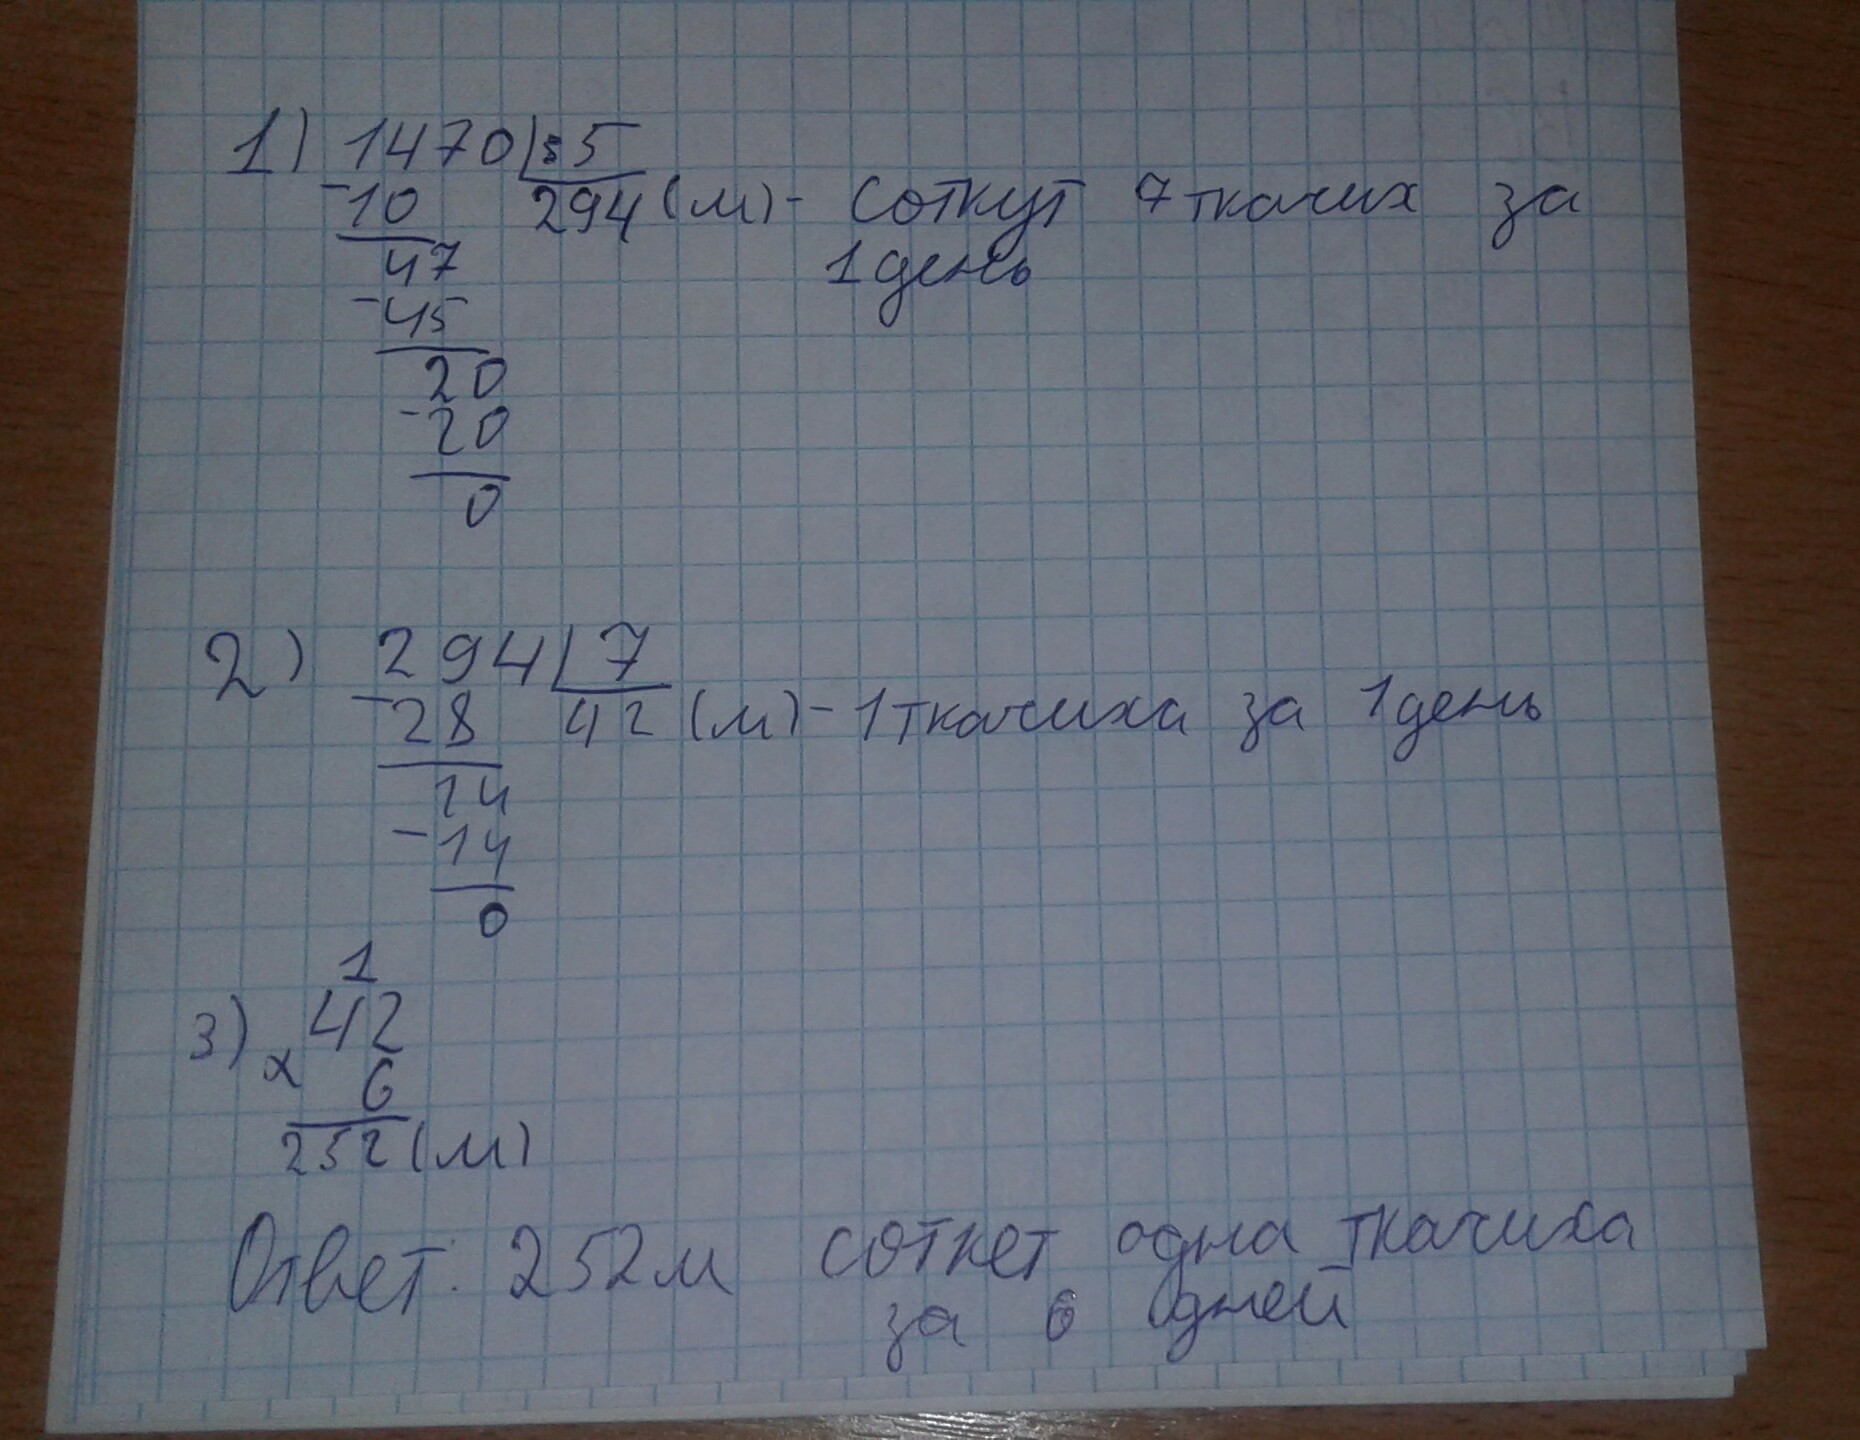 1) 1470 : 5
- 10 294 (м) - соткут 7 ткачих за
47 1 день
- 45
20
- 20
0
2) 294 7
- 28 42 (м) - 1 ткачиха за 1 день
14
- 14
0
1
3) 42
х 6
252 (м)
Ответ: 252 м соткет одна ткачиха
за 6 дней